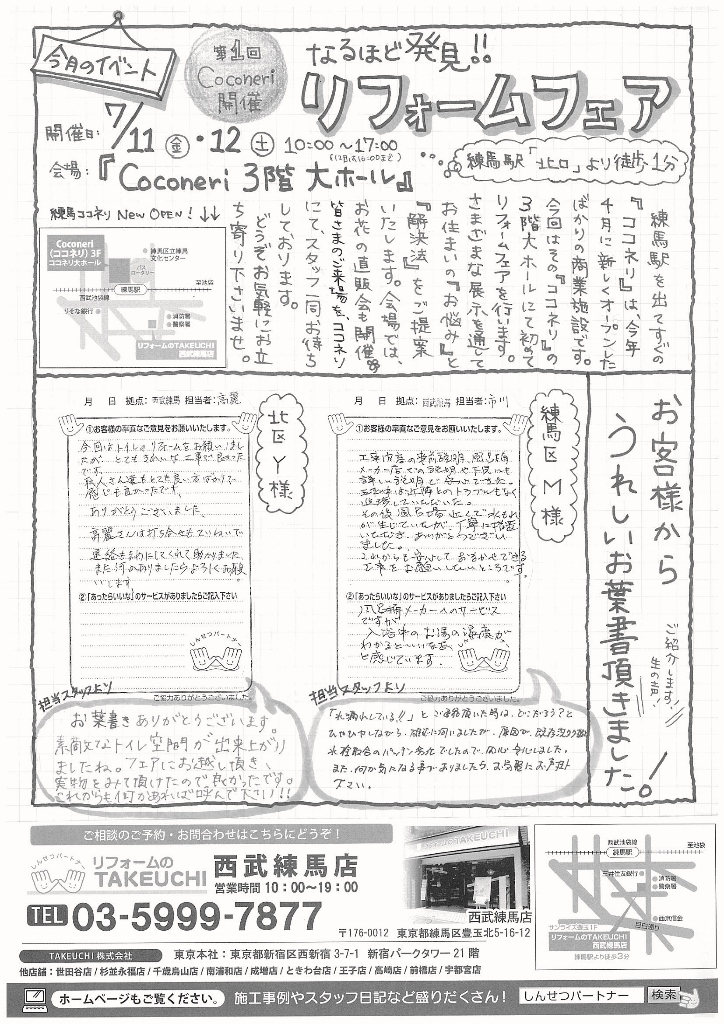 今月のイベント
第1回
Coconeri
開催
なるほど発見!!
リフォームフェア
開催日: 7/11(金)・12(土) 10:00～17:00
会場:『Coconeri 3階 大ホール』
練馬駅「北口」より徒歩1分
練馬ココネリ New OPEN! ↓↓
Coconeri
(ココネリ) 3F
ココネリ大ホール
練馬区立練馬
文化センター
バス
ロータリー
練馬駅
至池袋
西武池袋線
りそな銀行
消防署
警察署
リフォームのTAKEUCHI
西武練馬店
練馬駅を出てすぐの
『ココネリ』は、今年
4月に新しくオープンした
ばかりの商業施設です。
今回はその『ココネリ』の
3階大ホールにて初めて
リフォームフェアを行います。
さまざまな展示を通して
お住まいの『お悩み』と
『解決法』をご提案
いたします。会場では、
お花の直販会も開催
皆さまのご来場を、ココネリ
にて、スタッフ一同、お待ち
しております。
どうぞお気軽にお立
ち寄り下さいませ。
お客様から
うれしいお葉書頂きました!
ご紹介します!
生の声!
練馬区M様
月 日 拠点:西武練馬 担当者:市川
①お客様の率直なご意見をお願いいたします。
工事内容の事前説明、風呂場
メーカー店での説明や下見にも
詳しい説明で
その後風呂場近くで水もれ
が生じていたが、丁寧に措置
いただき、ありがとうござい
ました。
これからも安心しておまかせできる
工事をお願いしたいところです。
②「あったらいいな」のサービスがありましたらご記入下さい
風呂場メーカーへのサービス
ですが
入浴中のお湯の温度が
わかるといいなあ、
と感じています。
しんせつパートナー
ご協力ありがとうございました
北区Y様
月 日 拠点:西武練馬 担当者:高麗
①お客様の率直なご意見をお願いいたします。
今回はトイレのリフォームをお願いしまし
たが、とてもきれいな工事で良かった
です。
職人さん達もとても良い方ばかりで
感じも良かったです。
ありがとうございました。
高麗さんは打ち合せもていねいで
連絡もまめにしてくれて助かりました
また何かありましたらよろしくお願
いします
②「あったらいいな」のサービスがありましたらご記入下さい
しんせつパートナー
ご協力ありがとうございました
担当スタッフより
「水漏れしている!!」とご連絡頂いた時は、どこだろう?と
ひやひやしながら、確認に伺いましたが、原因が、既存洗タク機
水栓取合のパッキン劣化でしたので、安心しました。
また、何か気になる事がありましたら、お気軽にお声掛け
下さい。
担当スタッフより
お葉書きありがとうございます。
素敵なトイレ空間が出来上がり
ましたね。フェアにお越し頂き、
実物をみて頂けたので良かったです。
これからも何かあれば呼んで下さい!!
ご相談のご予約・お問合わせはこちらにどうぞ!
しんせつパートナー
リフォームの
TAKEUCHI
西武練馬店
営業時間 10:00～19:00
TEL 03-5999-7877
リフォームのTAKEUCHI
西武練馬店
〒176-0012 東京都練馬区豊玉北5-16-12
西武池袋線
練馬駅
至池袋
三井住友銀行
消防署
警察署
西京信金
目白通り
サンライズ遠玉1F
リフォームのTAKEUCHI
西武練馬店
練馬駅より徒歩3分
TAKEUCHI 株式会社
東京本社:東京都新宿区西新宿 3-7-1 新宿パークタワー 21 階
他店舗:世田谷店/杉並永福店/千歳烏山店/南浦和店/成増店/ときわ台店/王子店/高崎店/前橋店/宇都宮店
ホームページもご覧ください。
施工事例やスタッフ日記など盛りだくさん!
しんせつパートナー
検索